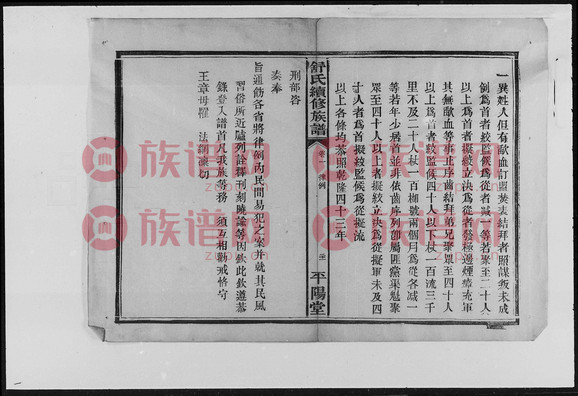 一異姓人但有歃血訂盟焚表結拜者照謀叛未成
例為首者絞監候為從者減一等若聚至二十人
以上為首者擬絞立決為從者發極邊煙瘴充軍
其無歃血等事止序齒結拜弟兄聚眾至四十人
以上為首者絞監候四十人以下杖一百流三千
里不及二十人杖一百枷號兩個月為從各減一
等若年少居首並非依齒序列即屬匪黨渠魁聚
眾至四十人以上者擬絞立決為從擬軍未及四
十人者為首擬絞監候為從擬流
以上各條均恭照乾隆四十三年
舒氏續修族譜
卷二
律例
平陽堂
刑部咨
奏奉
旨通飭各省將律例內民間易犯之案并就其民風
習俗所近臚列詮釋刊刻曉諭等因欽此欽遵恭
錄登入譜首凡我族等務須互相勸戒恪守
王章毋罹法網凜切
族谱网
zupu.cn
族谱网
zupu.cn
族谱网
zupu.cn
族谱网
zupu.cn